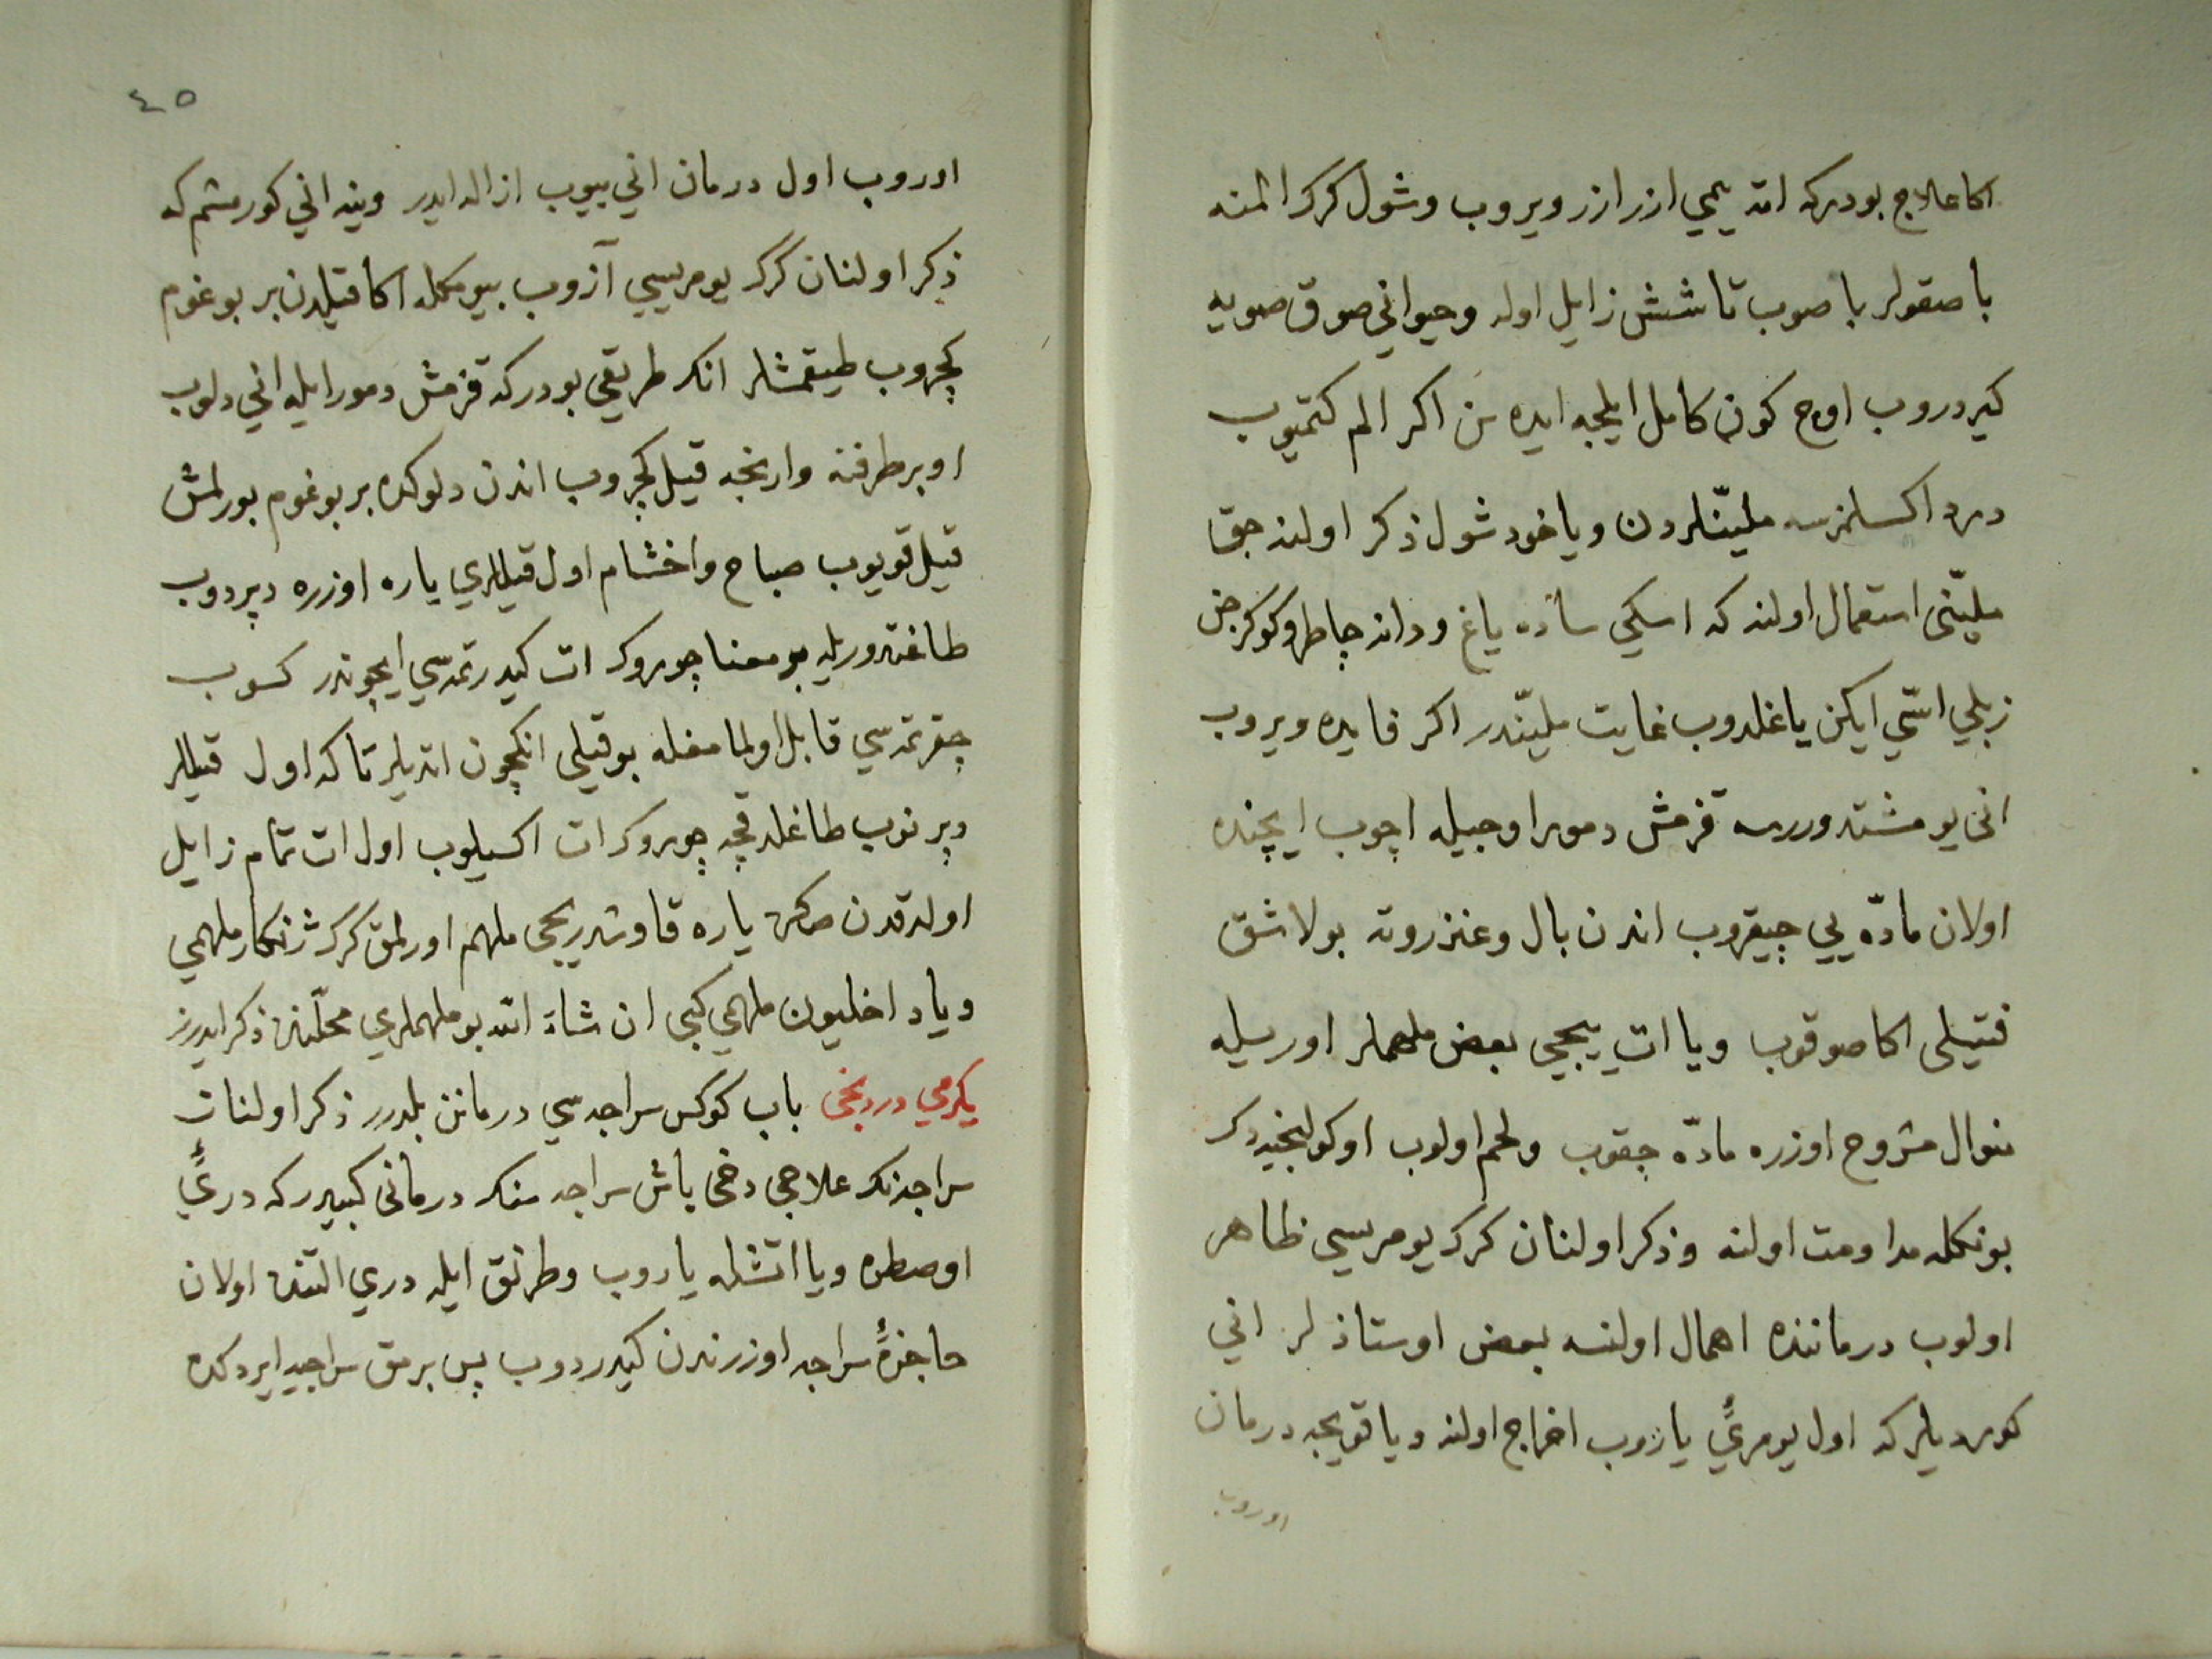 اكا علاج بودركه اته يمي ازر ازر ويروب وشول كرك المنه
با صقولر با صوب تا شش زايل اوله وحيواني صوق صويه
كيردروب اوج كون كامل ايلجه ايده سن اكر الم كتميوب
درد اكسلمزسه مليّنلردن ويا خود شول ذكر اولنه جق
مليّنى استعمال اولنه كه اسكي ساده ياغ ودانه چاطر وكوكرجن
زبلي اسّي ايكن ياغلدوب غايت مليّندر اكر فايده ويروب
انى يومشتدوررسه قزمش دمور اوجيله اچوب ايچنده
اولان مادّه يي چيقروب اندن بال وعنزروته بولاشق
فتيلى اكا صوقوب ويا ات يبجي بعض ملهملر اوريسيله
منوال مشروح اوزره مادّه چقوب ولحم اولوب اوكولنجيه دك
بونكله مداومت اولنه وذكر اولنان كرك يومريسي ظاهر
اولوب درماننده اهمال اولنسه بعض اوستاذلر اني
كورديلر كه اول يومرئي ياروب اخراج اولنه ويا قويجه درمان
اوروب
٤٥
اوروب اول درمان اني ييوب ازاله ايدر وينه اني كورمشم كه
ذكر اولنان كرك يومريسي آزوب بيومكله اكا قيلدن بر بوغوم
كچروب طيقمشلر انك طريقي بودركه قزمش دمور ايله اني دلوب
او بر طرفنه وارنجه قيل كچروب اندن دلوكده بر بوغوم بورلمش
قيل قويوب صباح واخشام اول قيللري ياره اوزره دپردوب
طاغتدوريله بو معنا چوروك ات كيدرتمه سي ايچوندر كسوب
چقرتمه سي قابل اولمامغله بو قيلى انكچون اتديلر تا كه اول قيللر
دپرنوب طاغلدقچه چوروك ات اكسيلوب اول ات تمام زايل
اولدقدن صكره ياره قاوشديريجى ملهم اورلمق كرك ژنكار ملهمي
ويا داخليون ملهمي كبى ان شاء الله بو ملهملري محلّنده ذكر ايدرز
يكرمي دردنجى باب كوكس سراجه سي درمانن بلدرر ذكر اولنان
سراجه نك علاجى دخى باش سراجه سنك درمانى كبيدر كه درئي
اوصطره ويا اتشله ياروب وطرنق ايله دري التنده اولان
حاجزهٔ سراجه اوزرندن كيدردوب پس برمق سراجيه ايردكده